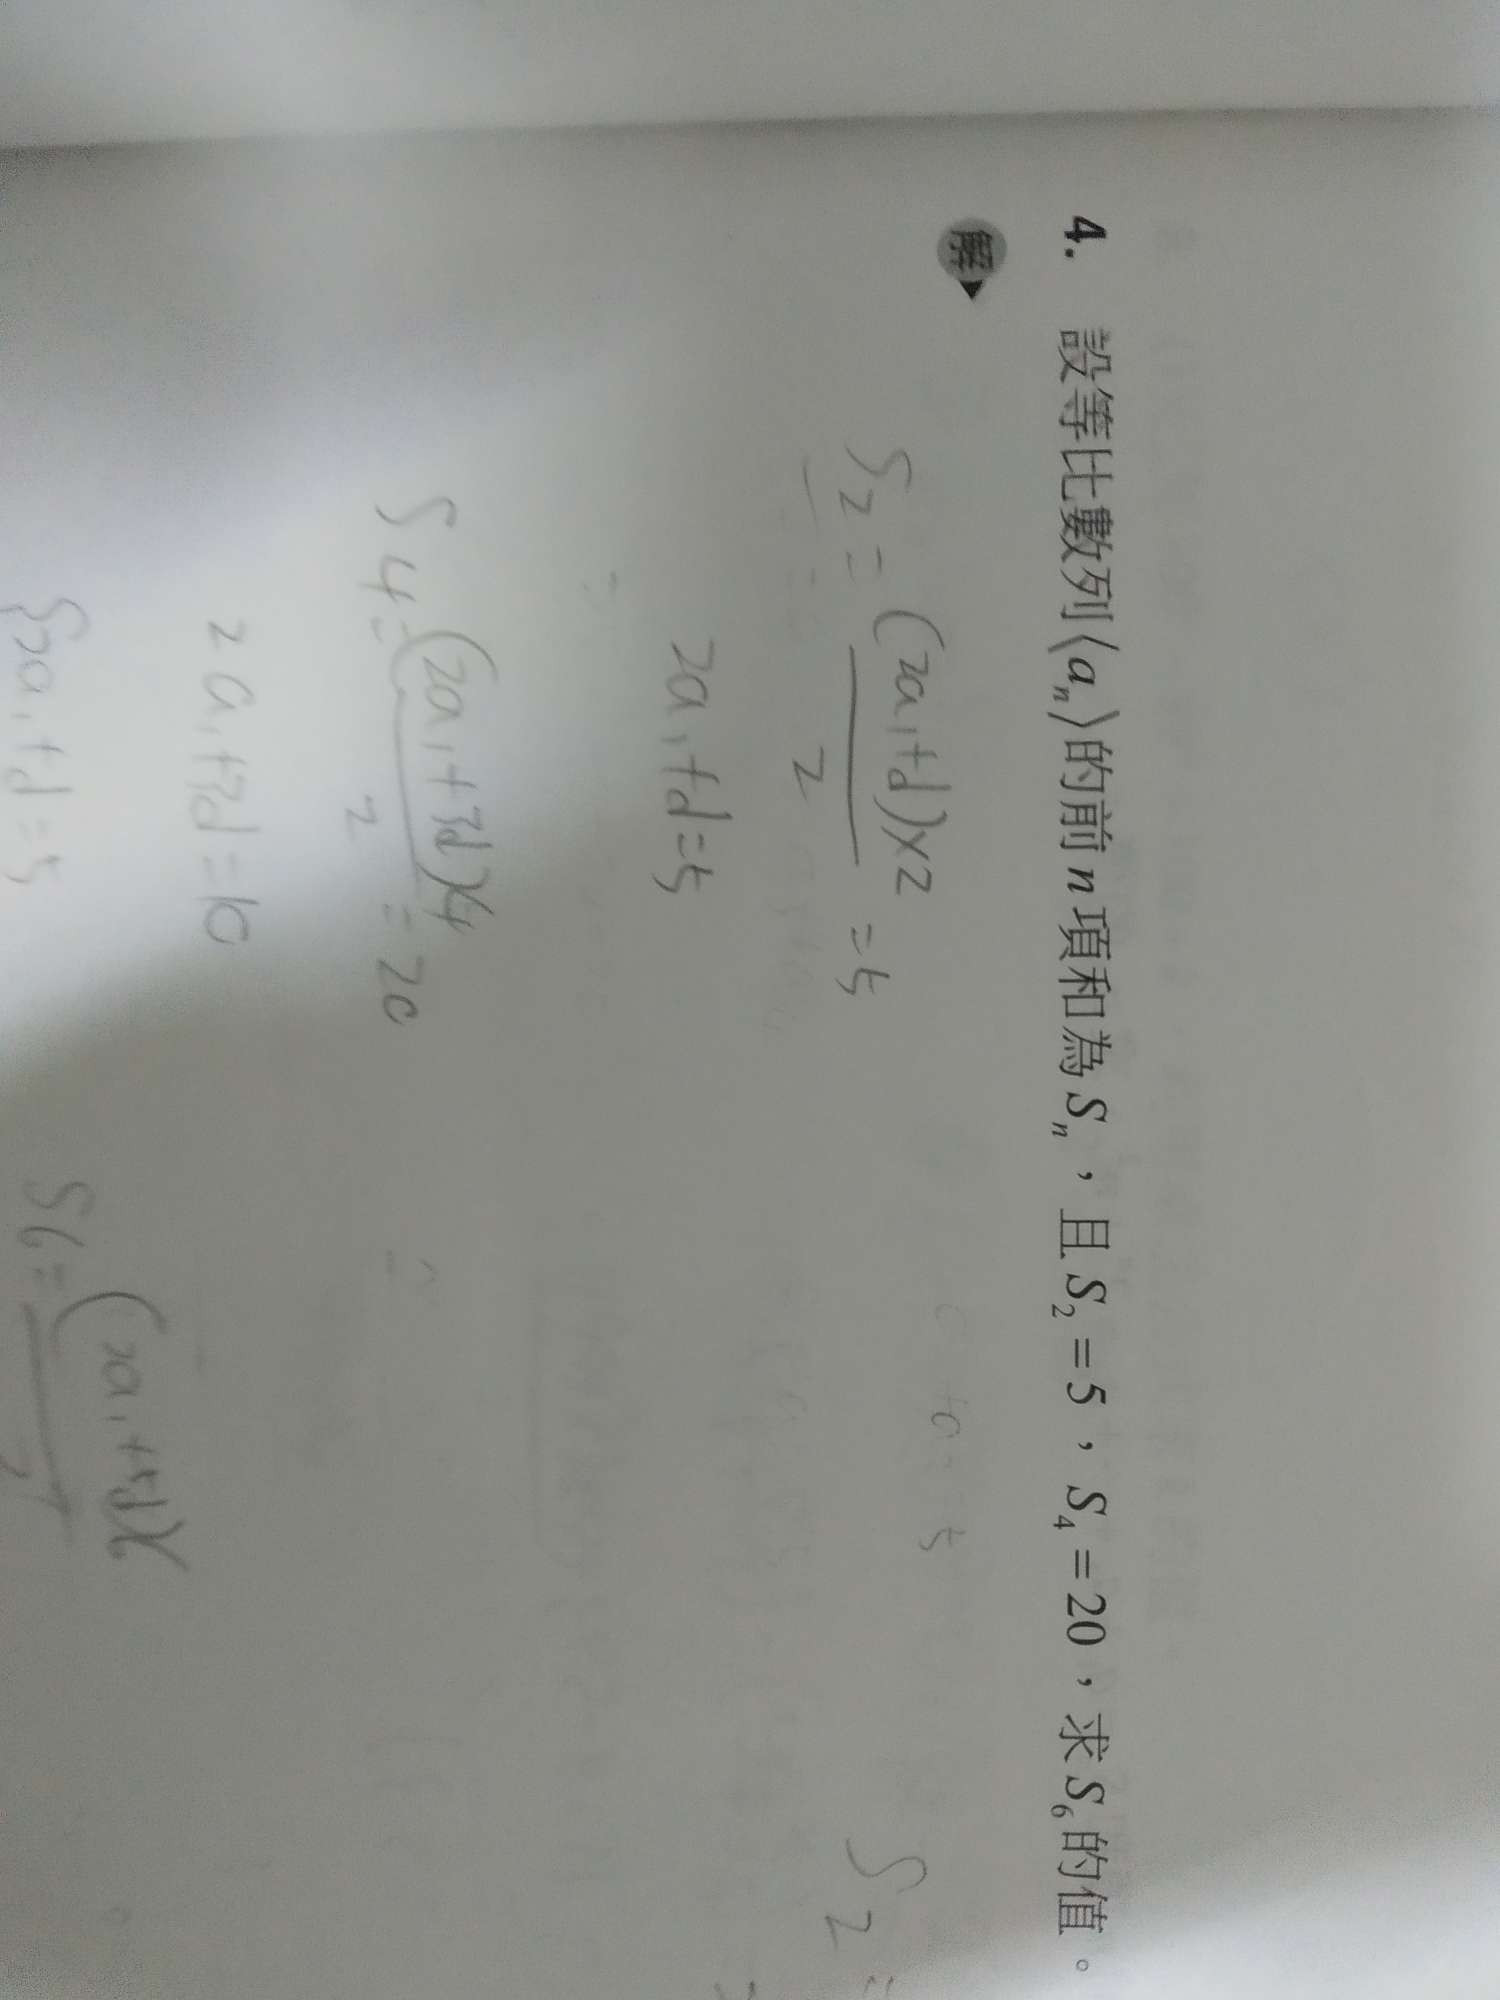 4. 設等比數列⟨aₙ⟩的前 n 項和為 Sₙ，且 S₂=5，S₄=20，求 S₆ 的值。
解
S2 = (2a1+d)×2 / 2 = 5
S2 =
2a1+d=5
S4= (2a1+3d)×4 / 2 = 20
2a1+3d=10
S6= (2a1+5d)
{2a1+d=5